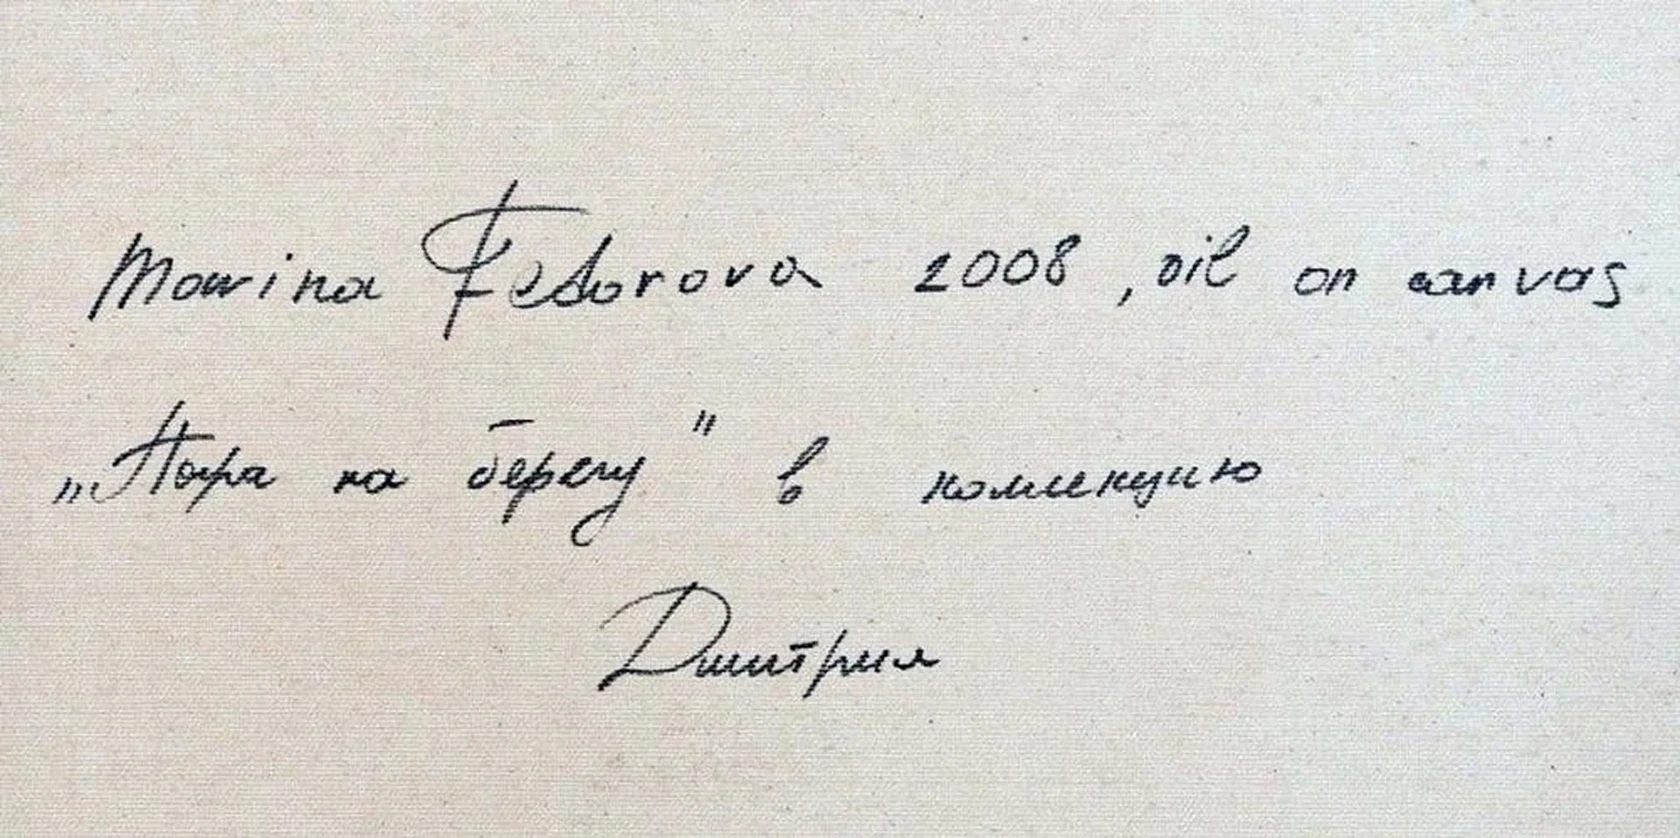 Marina Fedorova 2008, oil on canvas
„Пара на берегу" в коллекцию
Дмитрия